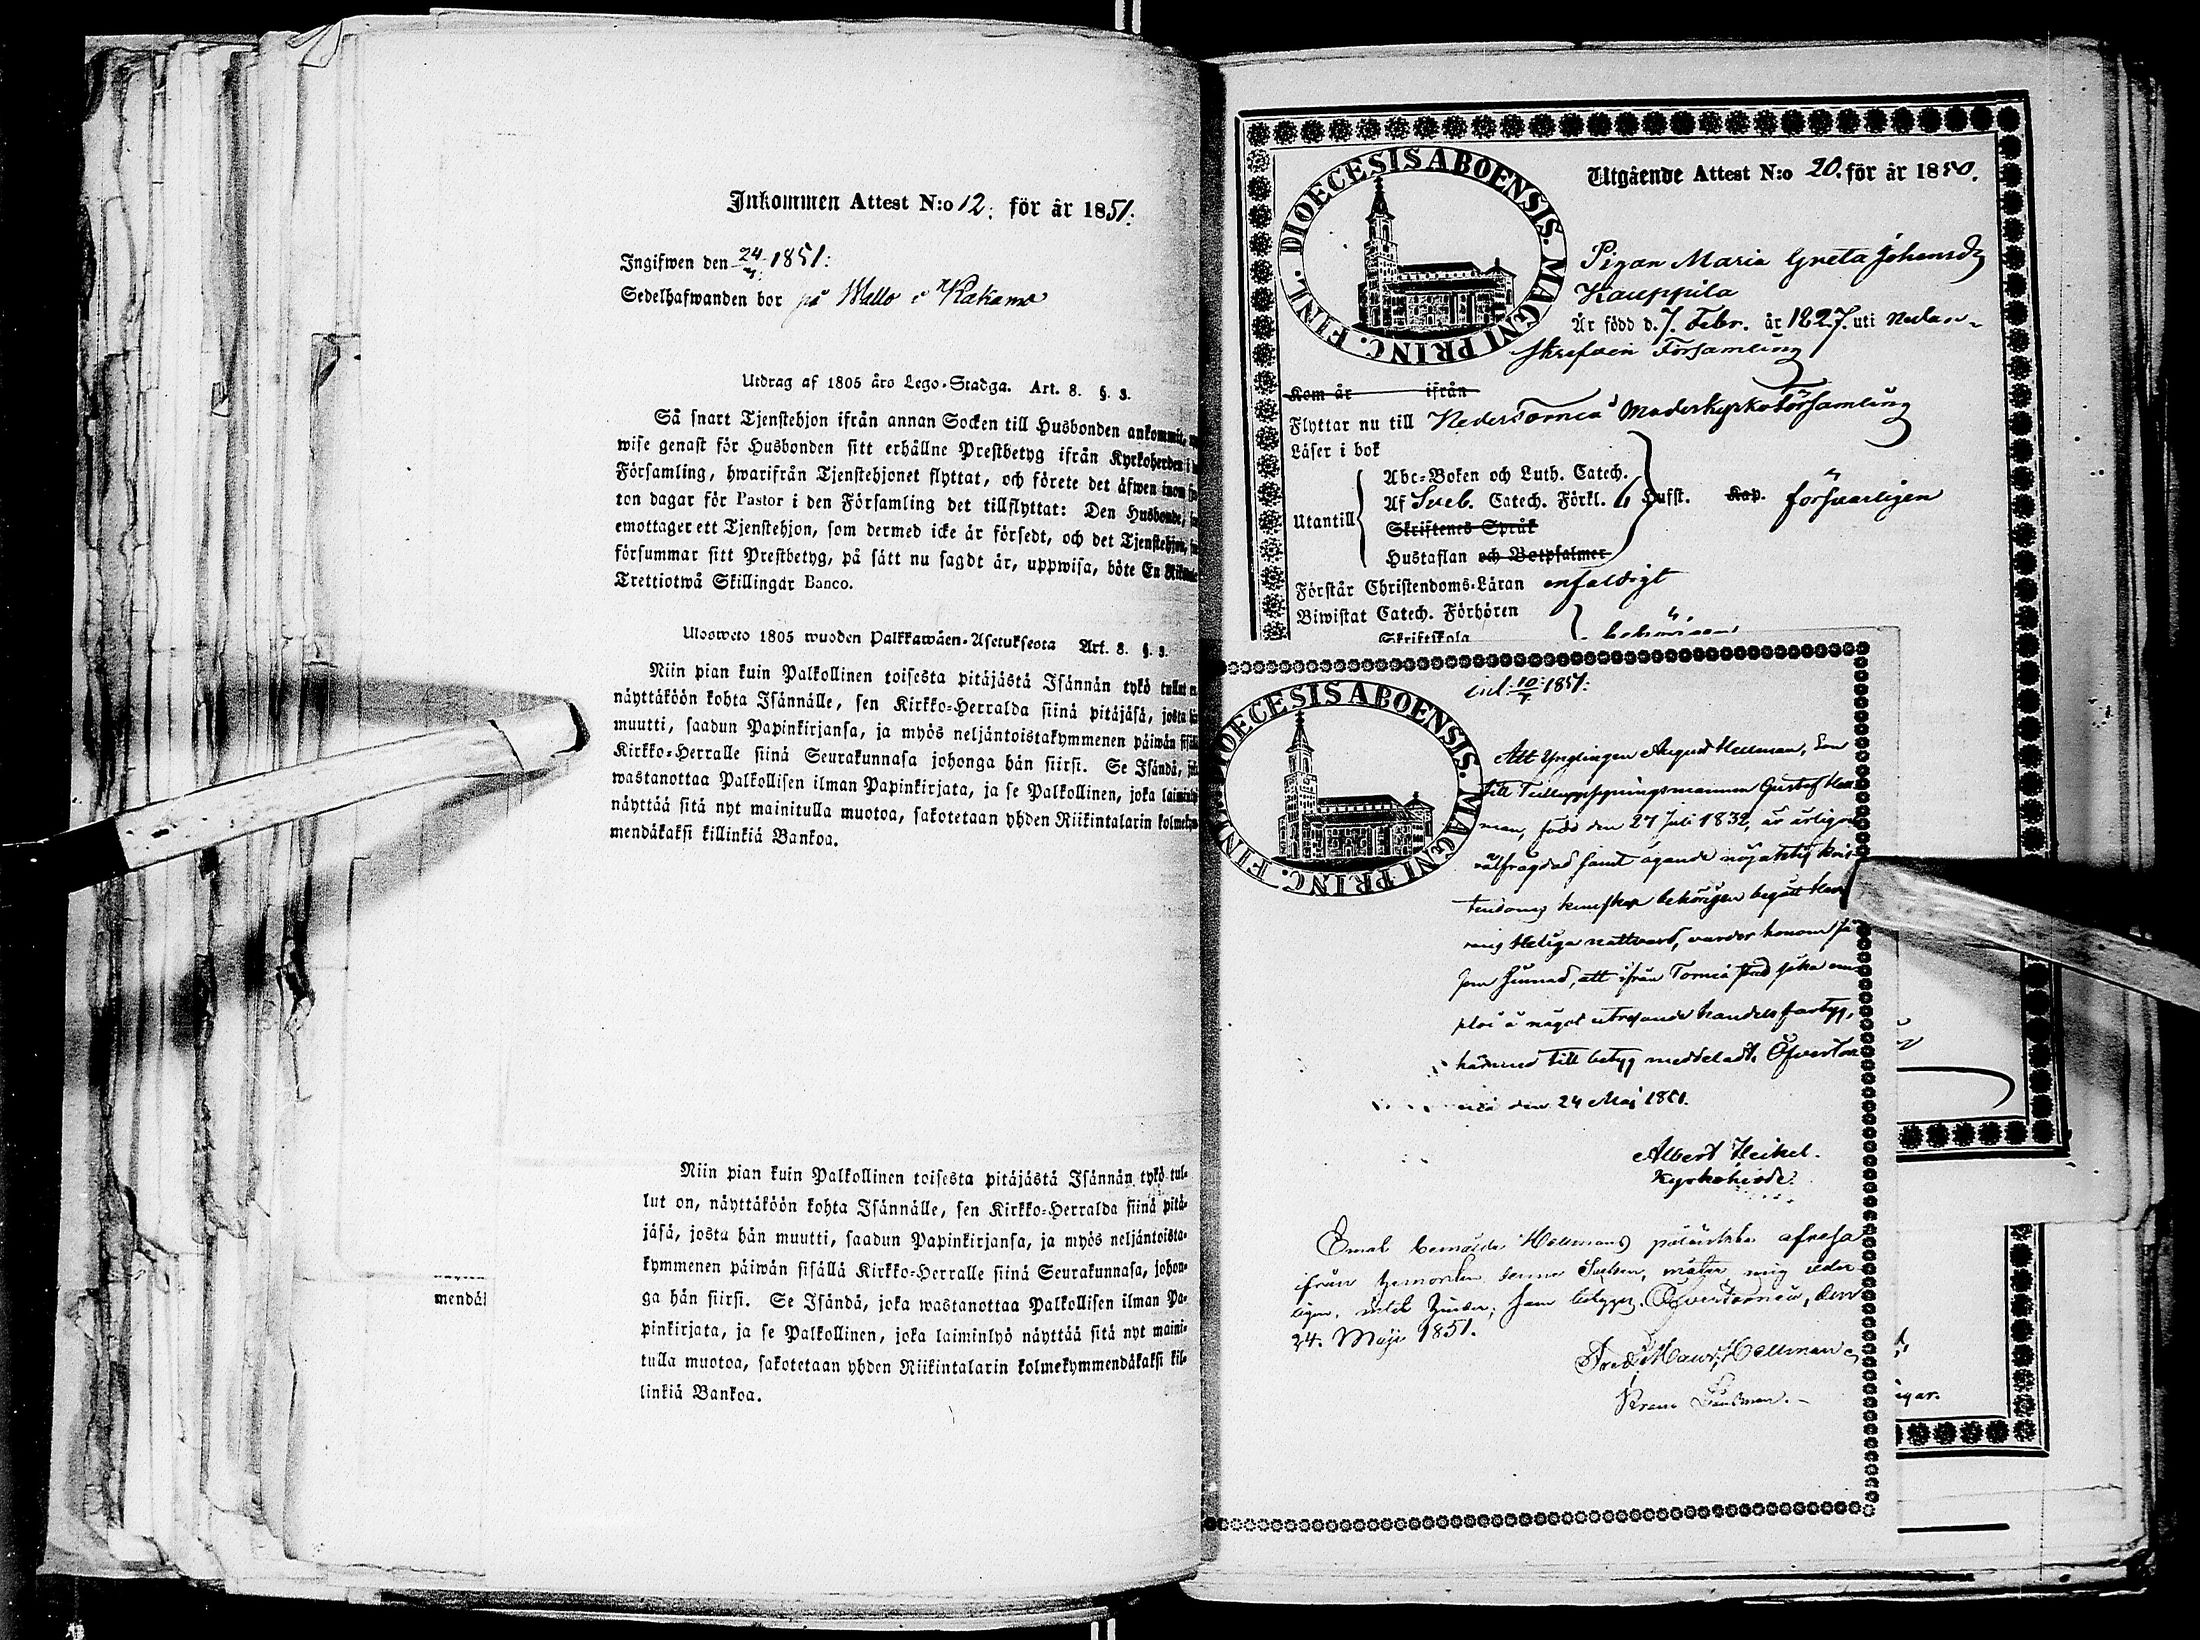 Inkommen Attest N:o 12: för år 1851:
Ingifwen den 24/7: 1851:
Sedelhafwanden bor på Wallo i Kakamo
Utdrag af 1805 års Lego-Stadga. Art. 8. §. 3.
Så snart Tjenstehjon ifrån annan Socken till Husbonden ankommit,
wise genast för Husbonden sitt erhållne Prestbetyg ifrån Kyrkoherden i
Församling, hwarifrån Tjenstehjonet flyttat, och förete det äfwen inom
ton dagar för Pastor i den Församling det tillflyttat: Den Husbonde,
emottager ett Tjenstehjon, som dermed icke är försedt, och det Tjenstehjon,
försummar sitt Prestbetyg, på sätt nu sagdt är, uppwisa, böte En
Trettiotwå Skillingar Banco.
Ulosweto 1805 wuoden Palkkawäen-Asetuksesta Art. 8. §. 3.
Niin pian kuin Palkollinen toisesta pitäjästä Isännän tykö tullut
näyttäköön kohta Isännälle, sen Kirkko-Herralda siinä pitäjäsä, josta
muutti, saadun Papinkirjansa, ja myös neljäntoistakymmenen päiwän
Kirkko-Herralle siinä Seurakunnasa johonga hän siirsi. Se Isändä,
wastanottaa Palkollisen ilman Papinkirjata, ja se Palkollinen, joka
näyttää sitä nyt mainitulla muotoa, sakotetaan yhden Riikintalarin
mendäkaksi killinkiä Bankoa.
mendäk
Niin pian kuin Palkollinen toisesta pitäjästä Isännän tykö tul-
lut on, näyttäköön kohta Isännälle, sen Kirkko-Herralda siinä pitä-
jäsä, josta hän muutti, saadun Papinkirjansa, ja myös neljäntoista-
kymmenen päiwän sisällä Kirkko-Herralle siinä Seurakunnasa, johon-
ga hän siirsi. Se Isändä, joka wastanottaa Palkollisen ilman Pa-
pinkirjata, ja se Palkollinen, joka laiminlyö näyttää sitä nyt maini-
tulla muotoa, sakotetaan yhden Riikintalarin kolmekymmendäkaksi kil-
linkiä Bankoa.
DIOECESIS ABOENSIS. MAGNI PRINC. FINL.
Utgående Attest N:o 20. för år 1850.
Pigan Maria Greta Johansdr
Kauppila
Är född d. 7. Febr. år 1827. uti Nedan-
skrefven Församling
Kom år ifrån
Flyttar nu till Nedertorneå Moderkyrkoförsamling
Läser i bok
Utantill
Abc-Boken och Luth. Catech.
Af Sveb. Catech. Förkl. 6 Hufst. Kap. försvarligen
Skriftenes Språk
Hustaflan och Botpsalmer
Förstår Christendoms-Läran enfaldigt
Biwistat Catech. Förhören
Skriftskola
DIOECESIS ABOENSIS. MAGNI PRINC. FINL
inl. 10/7 1851:
Att Ynglingen August Hellman, Son
till Gustaf
man, född den 27 Juli 1832, är ärligen
välfrägdad samt ägande nöjaktig kris-
tendoms kunskap behörigen begått Her-
rans Heliga nattvard, varder honom så
som sinnad, att ifrån Torneå stad söka em-
ploi å något utresande handels fartyg,
härmed till betyg meddeladt. Öfvertor-
neå den 24 Maj 1851.
Albert Heikel.
Kyrkoherde.
Emot bemälde Hellmans påtänkta afresa
ifrån hemorten denna Sommar,
hinder; som betygar. Öfvertorneå, den
24. Maji 1851.
Hellman
Krono Länsman.